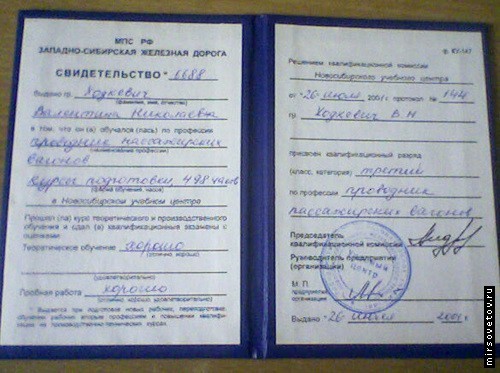 МПС РФ
ЗАПАДНО-СИБИРСКАЯ ЖЕЛЕЗНАЯ ДОРОГА
СВИДЕТЕЛЬСТВО № 6688
Выдано гр. Ходкевич
(фамилия, имя, отчество)
Валентина Николаевна
в том, что он (а) обучался (лась) по профессии
проводник пассажирских
(наименование профессии)
вагонов
курсы подготовки, 498 часов
(форма обучения, часов)
в Новосибирском учебном центре
Прошел (ла) курс теоретического и производственного
обучения и сдал (а) квалификационные экзамены с
оценками:
Теоретическое обучение хорошо
(отлично, хорошо,
удовлетворительно)
Пробная работа хорошо
(отлично, хорошо, удовлетворительно)
* Выдается при подготовке новых рабочих, переподготовке,
обучении рабочих вторым профессиям и повышении квалифи-
кации на производственно-технических курсах.
ф. КУ-147
Решением квалификационной комиссии
Новосибирского учебного центра
от "26" июля 2001 г. протокол № 144
гр. Ходкевич В.Н
присвоен квалификационный разряд
(класс, категория) третий
по профессии проводник
пассажирских вагонов
Председатель
квалификационной комиссии
Руководитель предприятия
(организации)
УЧЕБНЫЙ
ЦЕНТР
М. П.
предприятия,
организации
Выдано "26" июля 2001 г.
mirsovetov.ru